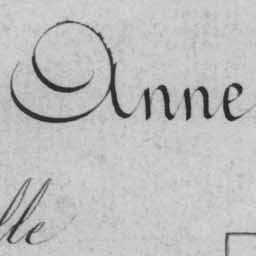 Anne
lle